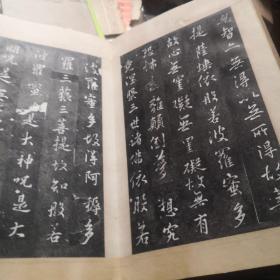 智亦無得以無所得
提薩埵依般若波羅蜜多
故心無罣礙無罣礙故無有
恐怖遠離顛倒夢想究
竟涅槃三世諸佛依般若
波羅蜜多故得阿耨多
羅三藐三菩提故知般若
波羅蜜多是大神咒是大
明咒是